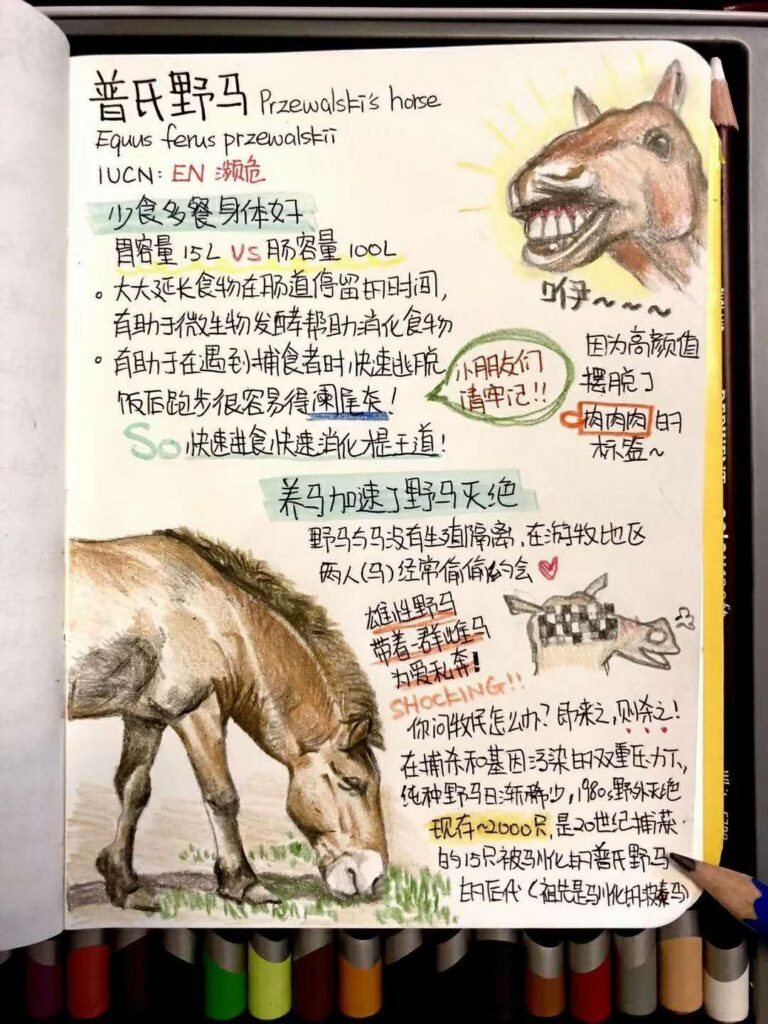 普氏野马 Przewalski's horse
Equus ferus przewalskii
IUCN: EN 濒危
少食多餐身体好
胃容量 15L VS 肠容量 100L
大大延长食物在肠道停留的时间,
有助于微生物发酵帮助消化食物
有助于在遇到捕食者时快速逃脱
饭后跑步很容易得阑尾炎!
So 快速进食快速消化才是王道!
小朋友们
请牢记!!
咿~~~~
因为高颜值
摆脱了
肉肉肉的
标签~
养马加速了野马灭绝
野马与马没有生殖隔离,在游牧地区
两人(马)经常偷偷约会
雄性野马
带着一群雌马
为爱私奔!
SHOCKING!!
你问牧民怎么办?即来之,则杀之!
在捕杀和基因污染的双重压力下,
纯种野马日渐稀少,1980s野外灭绝
现存~2000只,是20世纪捕获
的15只被驯化的普氏野马
的后代(祖先是驯化的波泰马)